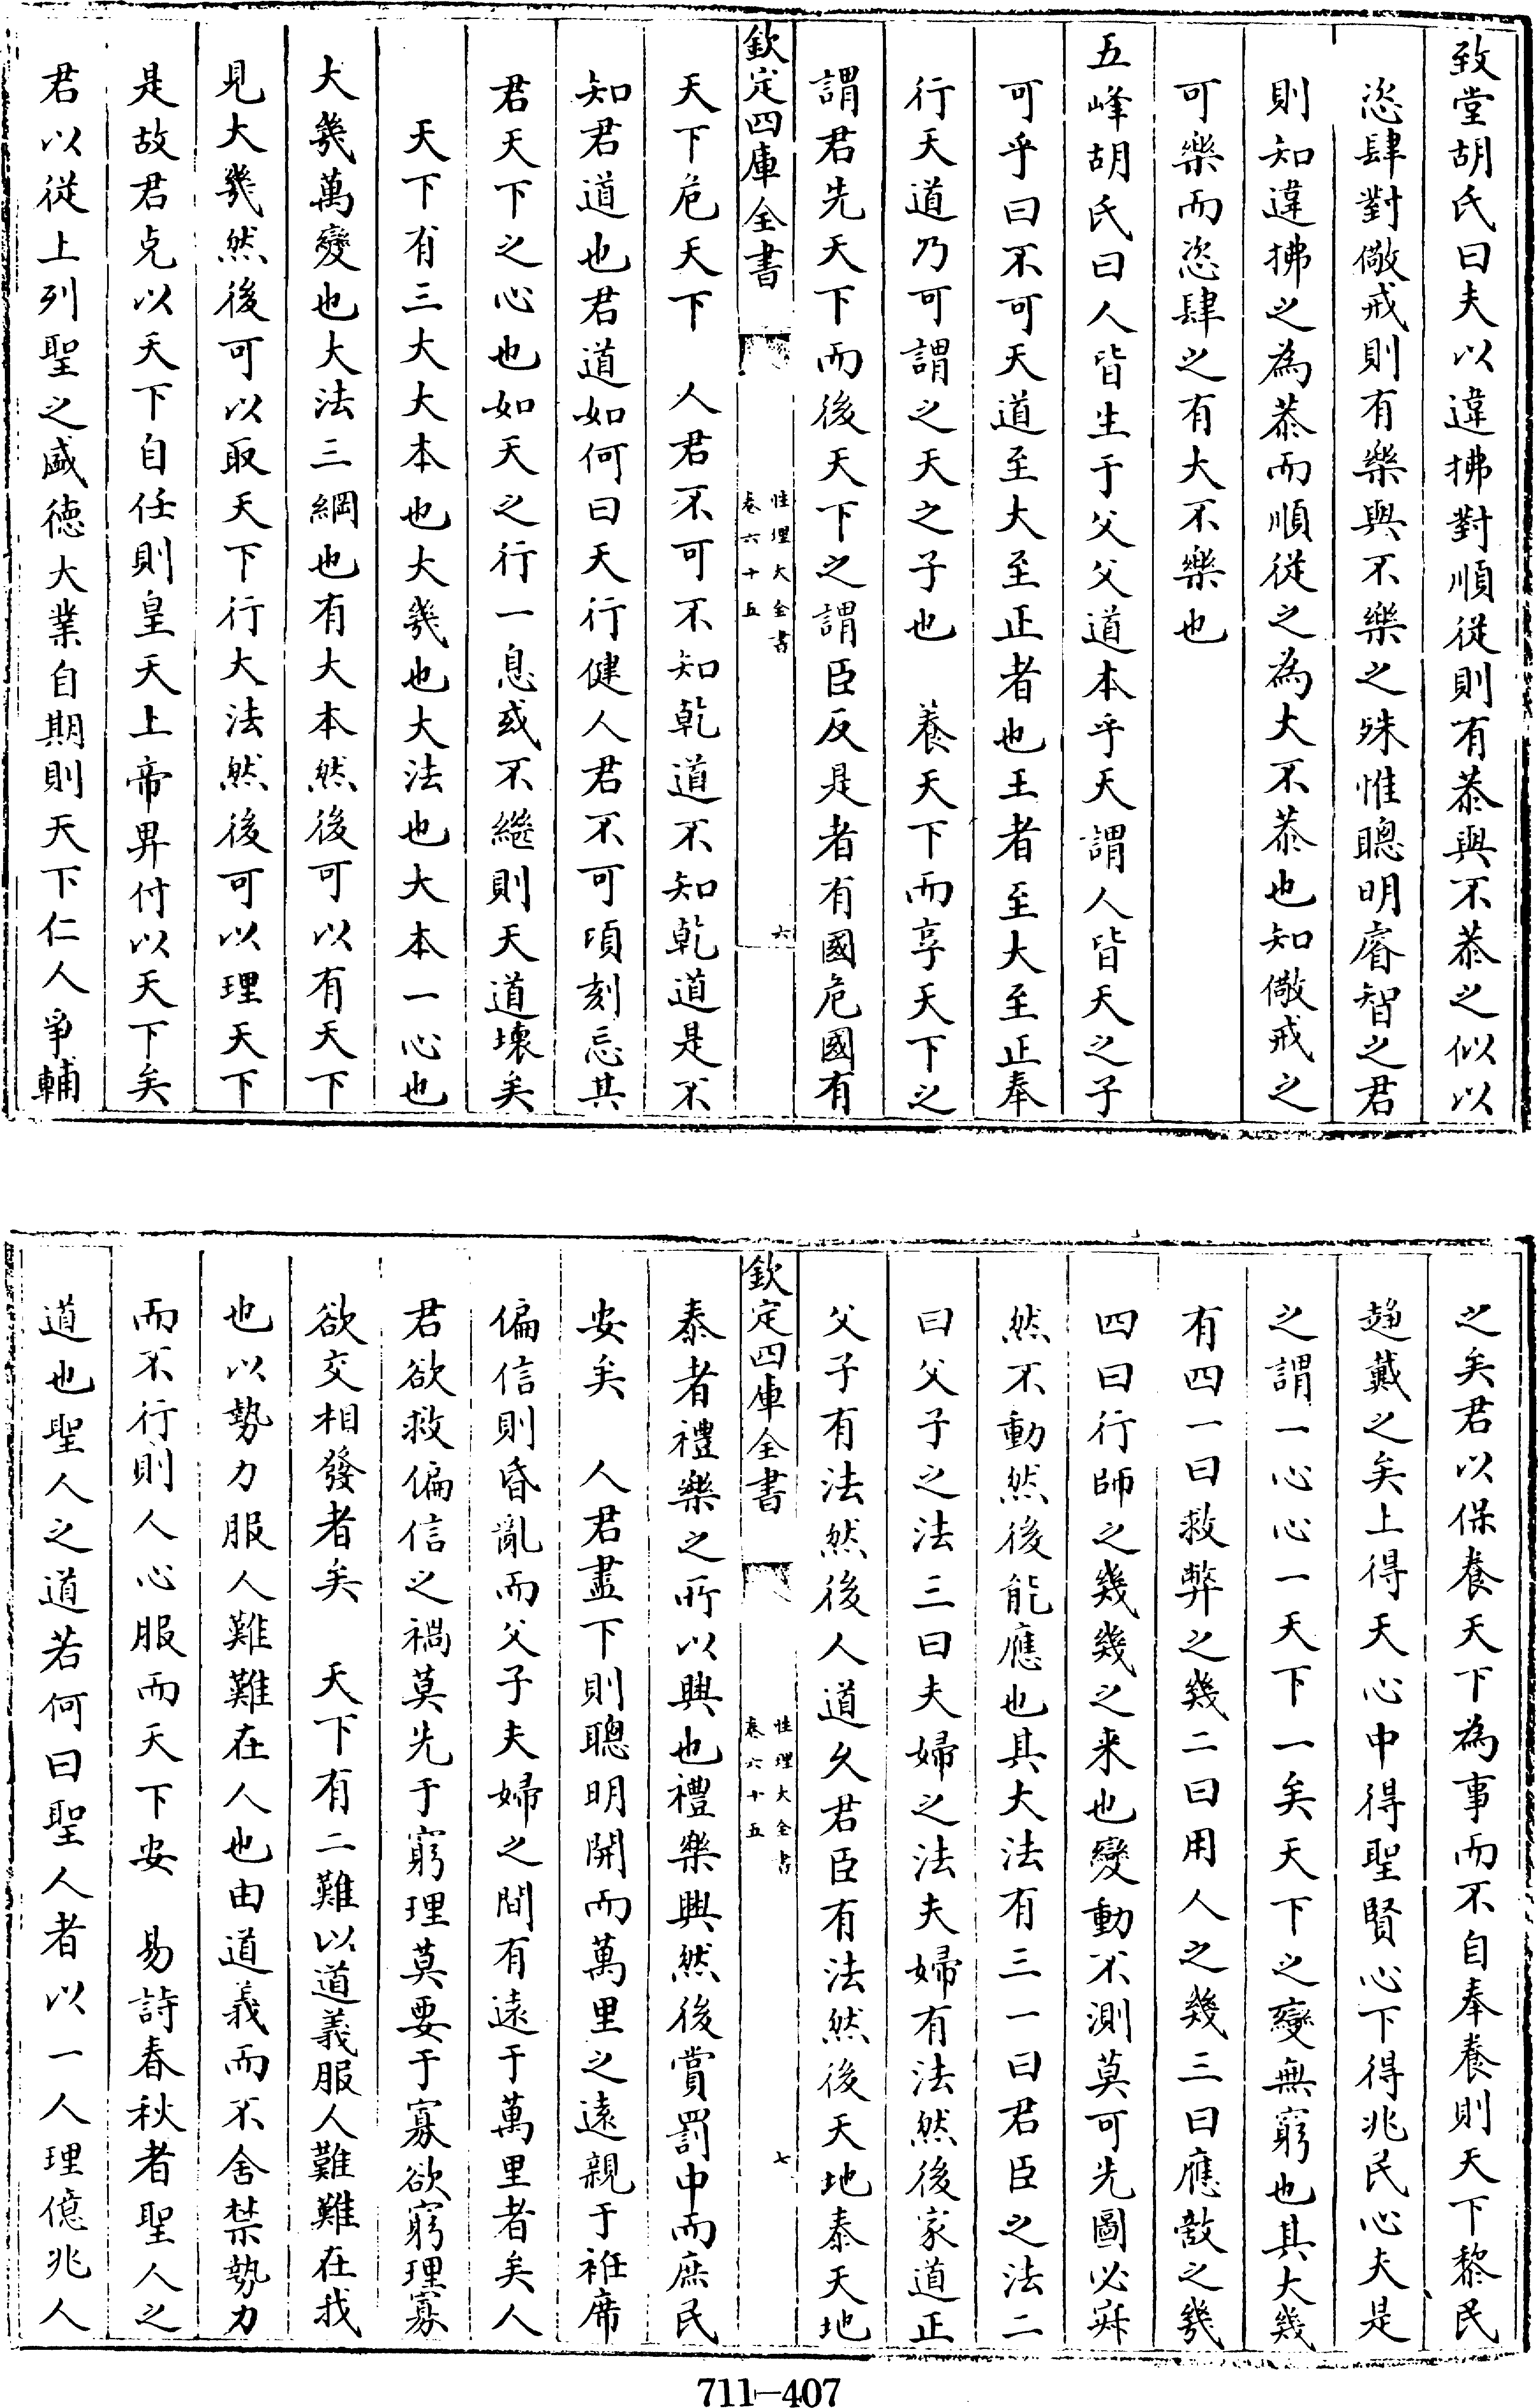 致堂胡氏曰夫以違拂對順從則有恭與不恭之似以
恣肆對儆戒則有樂與不樂之殊惟聰明睿智之君
則知違拂之為恭而順從之為大不恭也知儆戒之
可樂而恣肆之有大不樂也
五峰胡氏曰人皆生于父父道本乎天謂人皆天之子
可乎曰不可天道至大至正者也王者至大至正奉
行天道乃可謂之天之子也　養天下而享天下之
謂君先天下而後天下之謂臣反是者有國危國有
欽定四庫全書
性理大全書
卷六十五
六
天下危天下　人君不可不知乾道不知乾道是不
知君道也君道如何曰天行健人君不可頃刻忘其
君天下之心也如天之行一息或不繼則天道壞矣
天下有三大大本也大幾也大法也大本一心也
大幾萬變也大法三綱也有大本然後可以有天下
見大幾然後可以取天下行大法然後可以理天下
是故君克以天下自任則皇天上帝畀付以天下矣
君以從上列聖之盛徳大業自期則天下仁人爭輔
之矣君以保養天下為事而不自奉養則天下黎民
趨戴之矣上得天心中得聖賢心下得兆民心夫是
之謂一心心一天下一矣天下之變無窮也其大幾
有四一曰救弊之幾二曰用人之幾三曰應敵之幾
四曰行師之幾幾之来也變動不測莫可先圖必寂
然不動然後能應也其大法有三一曰君臣之法二
曰父子之法三曰夫婦之法夫婦有法然後家道正
父子有法然後人道久君臣有法然後天地泰天地
欽定四庫全書
性理大全書
卷六十五
七
泰者禮樂之所以興也禮樂興然後賞罰中而庶民
安矣　人君盡下則聰明開而萬里之遠親于袵席
偏信則昏亂而父子夫婦之間有遠于萬里者矣人
君欲救偏信之禍莫先于窮理莫要于寡欲窮理寡
欲交相發者矣　天下有二難以道義服人難難在我
也以勢力服人難難在人也由道義而不舍禁勢力
而不行則人心服而天下安　易詩春秋者聖人之
道也聖人之道若何曰聖人者以一人理億兆人
711—407